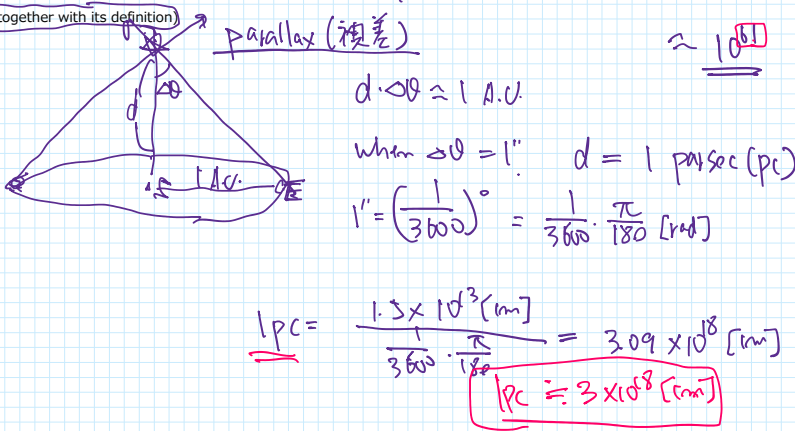 together with its definition)
parallax (視差)
≈ 10^61
Δθ
d
d·Δθ ≈ 1 A.U.
When Δθ = 1" d = 1 parsec (pc)
1 A.U. E
1" = (1/3600)° = 1/3600 · π/180 [rad]
1pc = 1.5 × 10^13 [cm] / (1/3600 · π/180) = 3.09 × 10^18 [cm]
1pc ≒ 3 × 10^18 [cm]